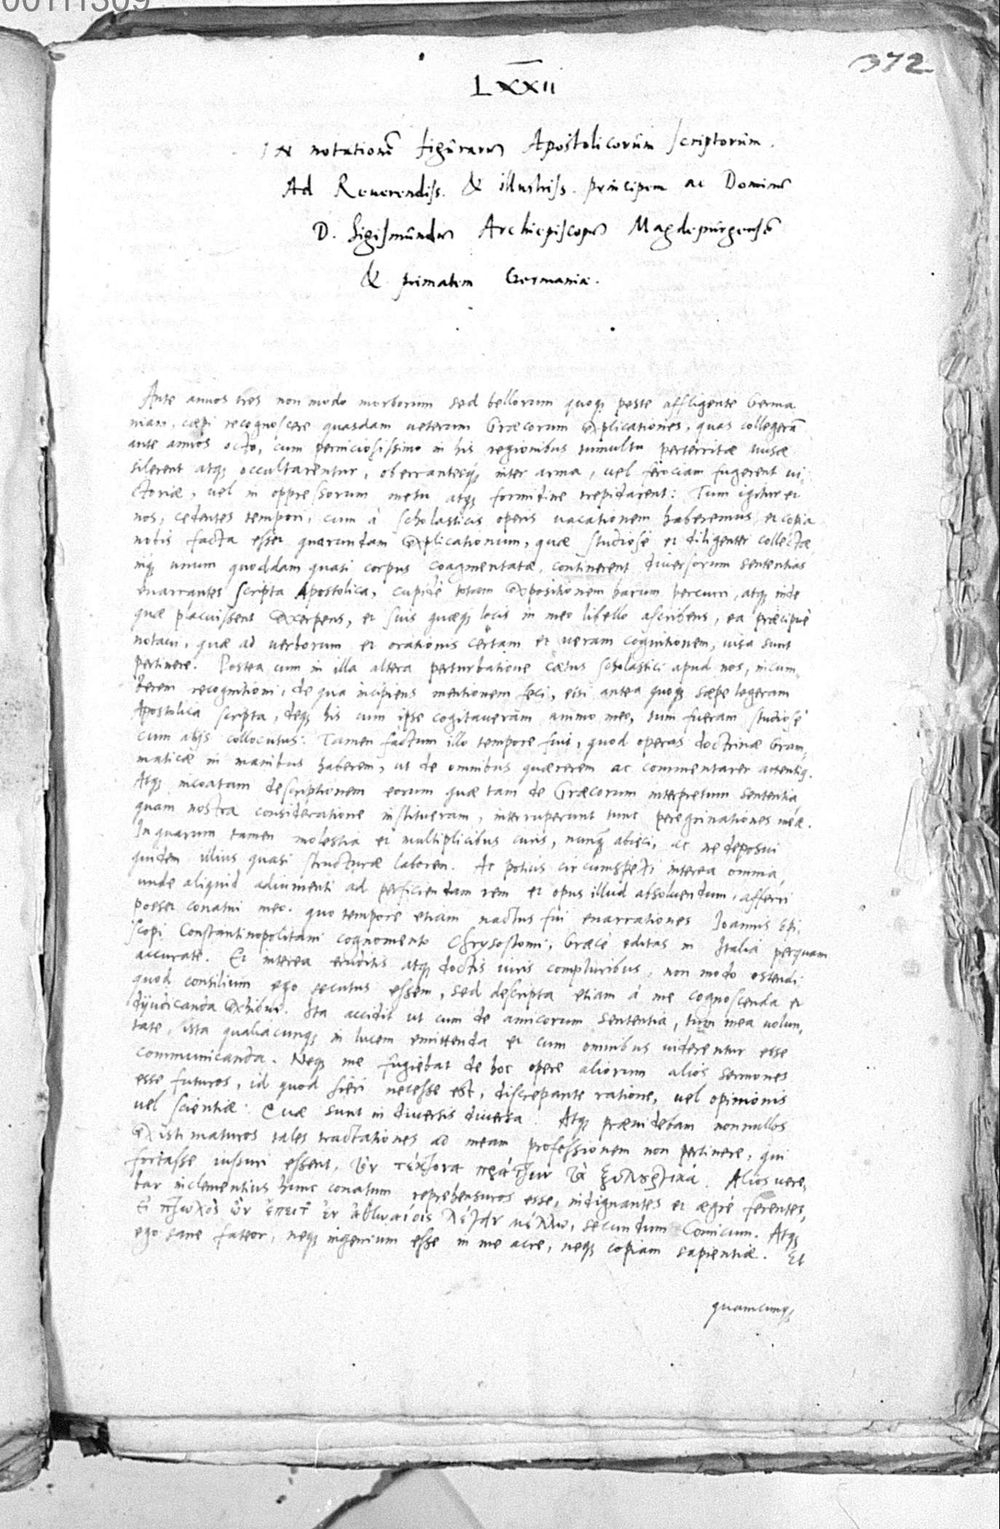 00111309
372
LXXII
IN notationē figūrarū Apostolicorūm scriptorūm.
Ad Reuerendiss. & illustriss. principem ac Dominū
D. Sigismūndū Archiepiscopū Magdepūrgensē
& primatem Germaniæ.
Ante annos tres non modo morborum sed bellorum quoq; peste affligente Germa
niam, cœpi recognoscere quasdam ueterum Græcorum explicationes, quas collegerā
ante annos octo, cum perniciosissimo in his regionibus tumultu perterritæ musæ
silerent atq; occultarentur, oberrantesq; inter arma, uel ferociam fugerent ui,
ctoriæ, uel in oppressorum metu atq; formidine trepidarent: Tum igitur et
nos, cedentes tempori, cum à scholasticis operis uacationem haberemus, et copia
nobis facta esset quarundam explicationum, quæ studiose et diligenter collectæ,
inq; unum quoddam quasi corpus coagmentatæ, continerent diuersorum sententias
enarrantes scripta Apostolica, cupide totam expositionem harum percurri, atq; inde
quæ placuissent excerpens, et suis quæq; locis in meo libello ascribens, ea præcipuè
notaui, quæ ad uerborum et orationis certam et ueram cognitionem, uisa sunt
pertinere. Postea cum in illa altera perturbatione cœtus scholastici apud nos, incum,
berem recognitioni, de qua incipiens mentionem feci, etsi antea quoq; sæpe legeram
Apostolica scripta, deq; his cum ipse cogitaueram animo meo, tum fueram studiosè
cum alijs collocutus: Tamen factum illo tempore fuit, quod operas doctrinæ Gram,
maticæ in manibus haberem, ut de omnibus quærerem ac commentarer attentiq.
Atq; incoatam descriptionem eorum quæ tam de Græcorum interpretum sententia,
quam nostra consideratione institueram, interruperunt tunc peregrinationes meæ.
In quarum tamen molestia et multiplicibus curis, nunq̄ abieci, ac ne deposui
quidem illius quasi structuræ laborem. Ac potius circumspexi interea omnia,
unde aliquid adiumenti ad perficiendam rem et opus illud absoluendum, afferri
posset conatui meo. quo tempore etiam nactus fui enarrationes Ioannis Epi,
scopi Constantinopolitani cognomento Chrysostomi, Græce editas in Italia perquam
accurate. Et interea eruditis atq; doctis uiris compluribus, non modo ostendi
quod consilium ego secutus essem, sed descripta etiam à me cognoscenda et
dijudicanda exhibui. Ita accidit ut cum de amicorum sententia, tum mea uolun,
tate, ista qualiacunq; in lucem emittenda et cum omnibus uiderentur esse
communicanda. Neq; me fugiebat de hoc opere aliorum alios sermones
esse futuros, id quod fieri necesse est, discrepante ratione, uel opinionis
uel scientiæ. Quæ sunt in diuersis diuersa. Atq; præuidebam nonnullos
existimaturos tales tractationes ad meam professionem non pertinere, qui
fortasse iussuri essent, τὸν τέκτονα πράττειν τὰ ξυλουργικά. Alios uere,
bar inclementius hunc conatum reprehensuros esse, indignantes et ægrè ferentes,
Εἰ πτωχὸς ὢν ἔπειτ' ἐν ἀθηναίοις λέγειν μέλλω, secundum Comicum. Atq;
ego sane fateor, neq; ingenium esse in me acre, neq; copiam sapientiæ. Et
quamcunq;